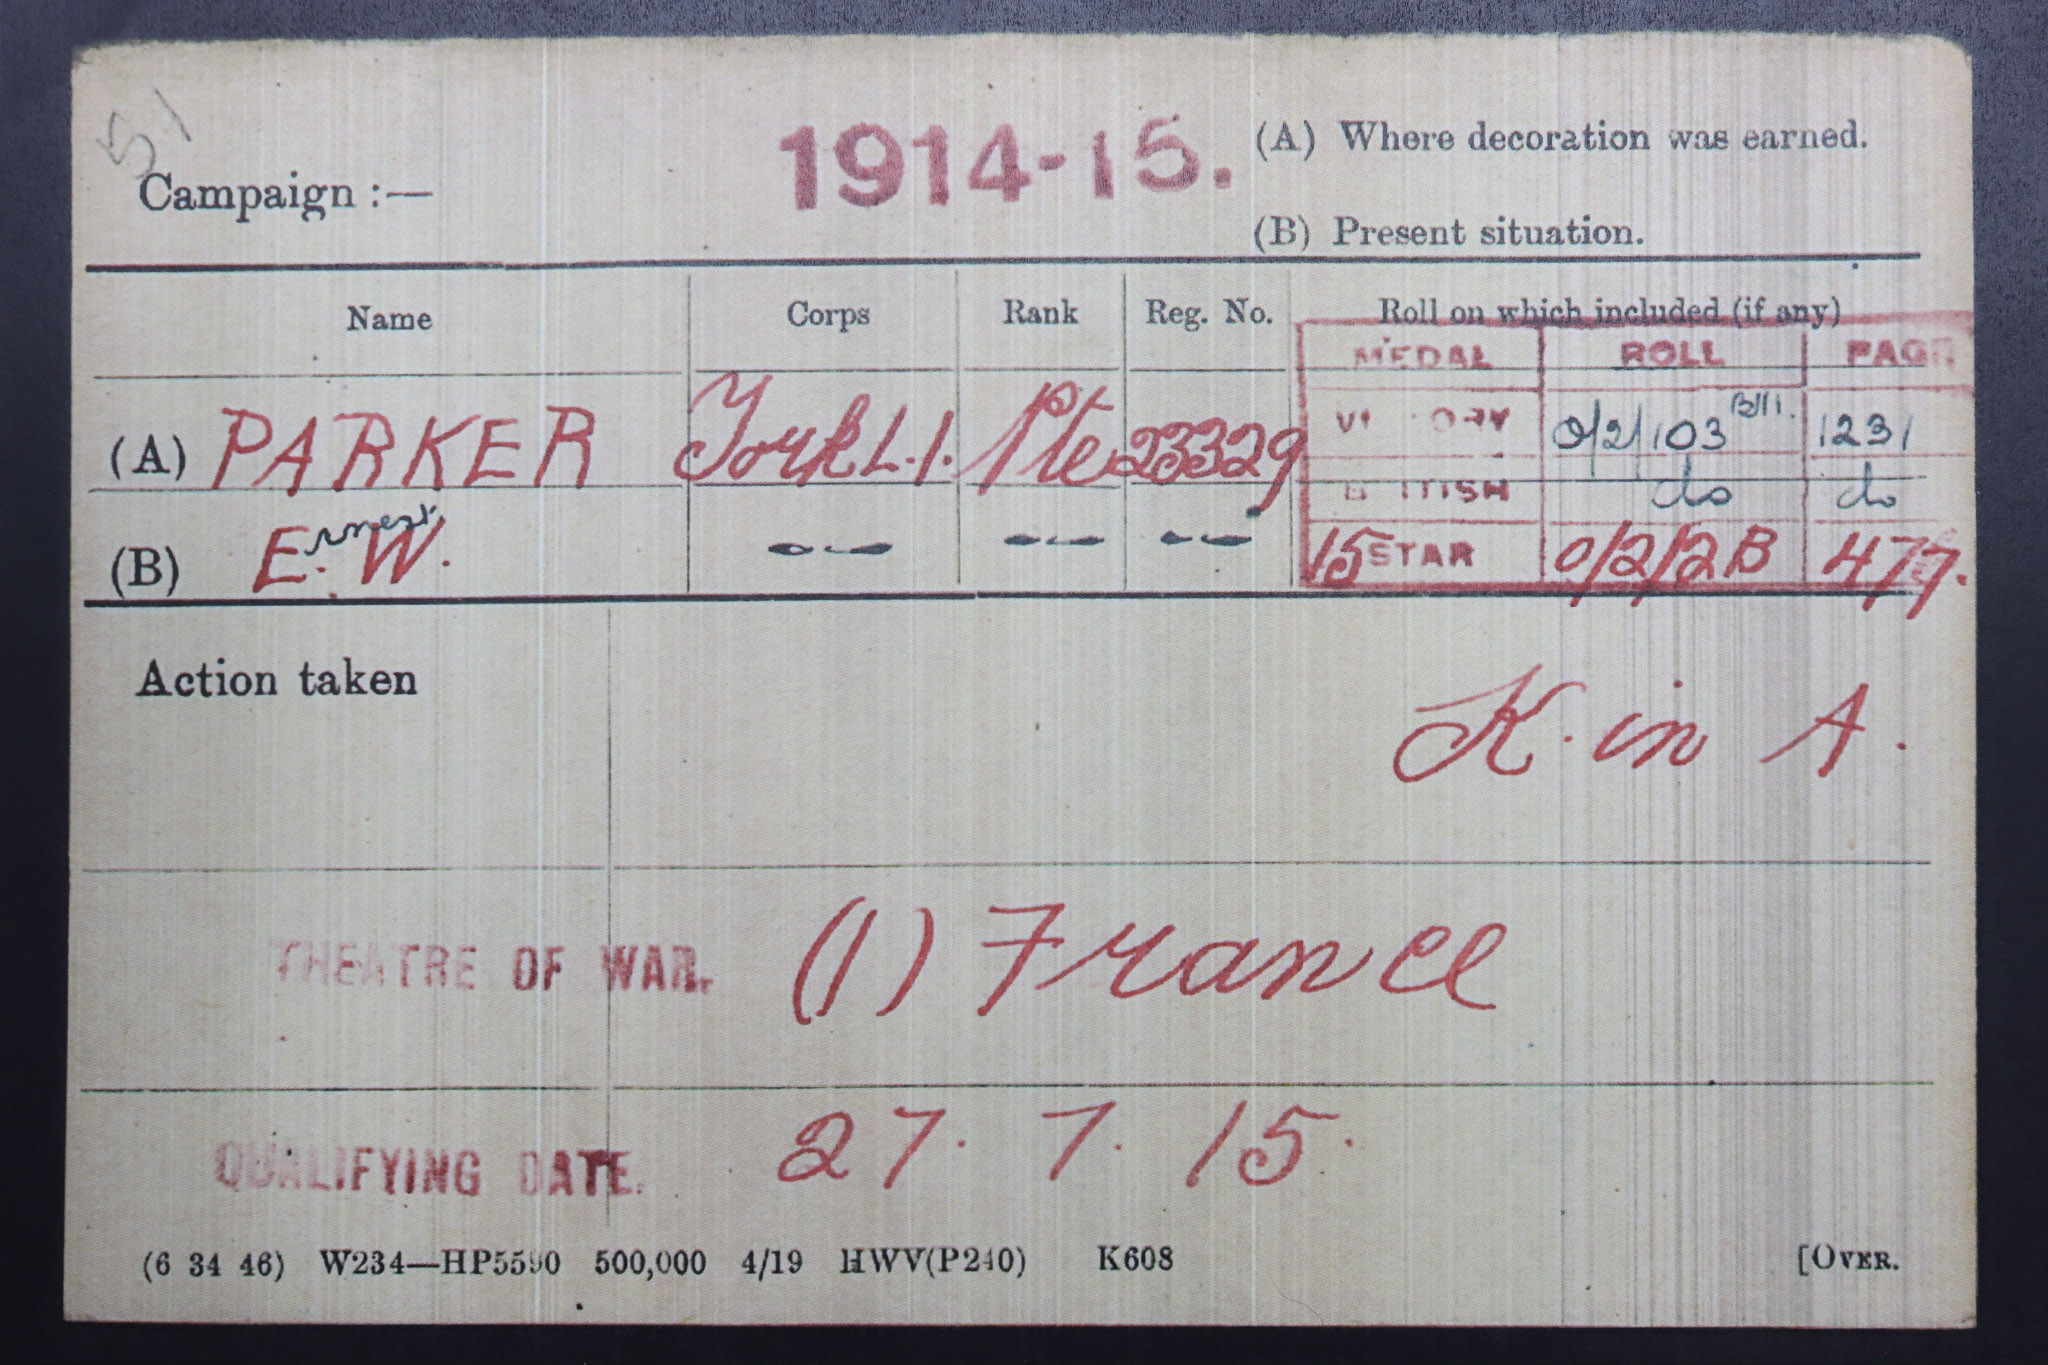 51
Campaign :— 1914-15. (A) Where decoration was earned.
(B) Present situation.
Name Corps Rank Reg. No. Roll on which included (if any)
MEDAL ROLL PAGE
(A) PARKER York L.I. Pte 23329 VICTORY O/2/103 B11. 1231
BRITISH do do
(B) E. Ernest W. -- -- -- 15 STAR O/2/2B 477.
Action taken
K. in A.
THEATRE OF WAR. (1) France
QUALIFYING DATE. 27. 7. 15.
(6 34 46) W234—HP5590 500,000 4/19 HWV(P240) K608 [OVER.